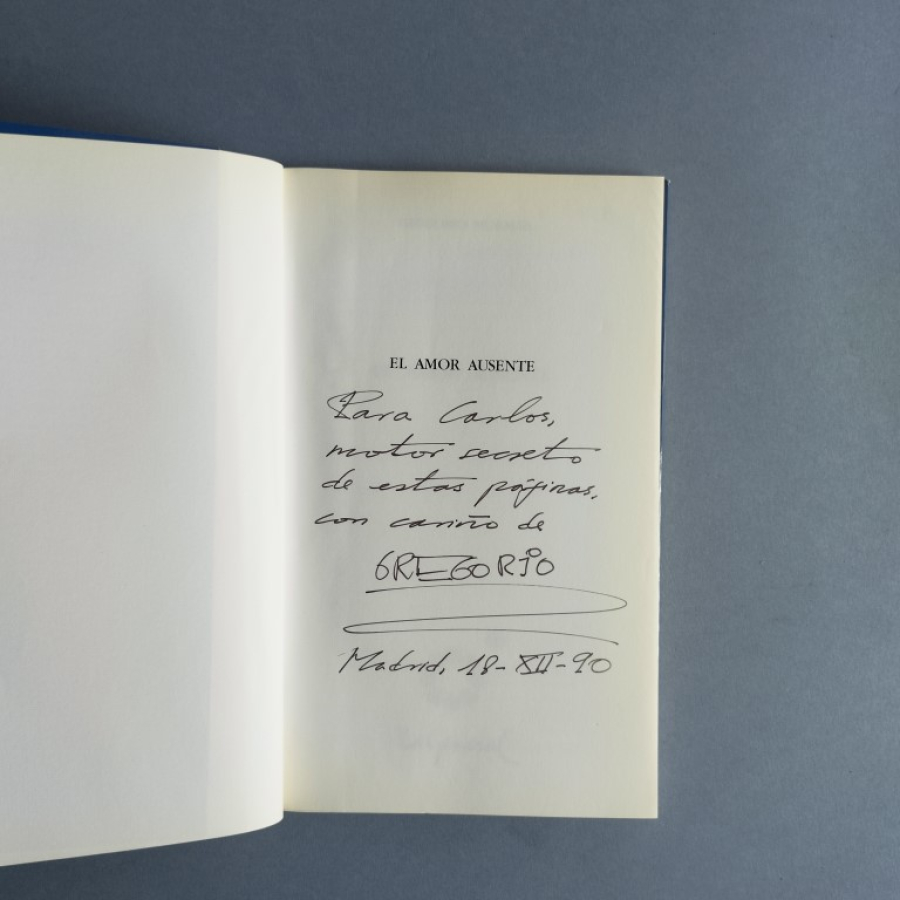 EL AMOR AUSENTE
Para Carlos,
motor secreto
de estas páginas,
con cariño de
GREGORIO
Madrid, 18-XII-90